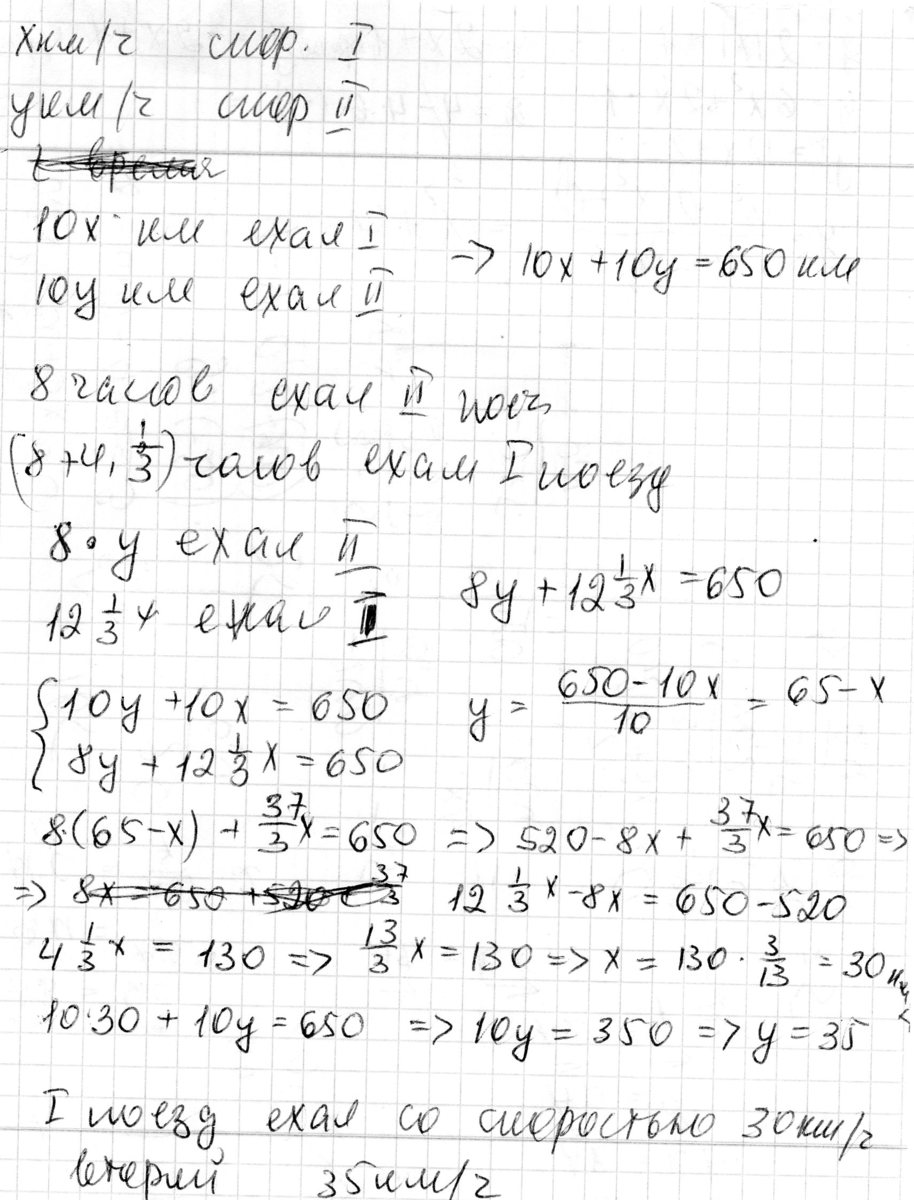 x км/ч скор. I
y км/ч скор II
t время
10x км ехал I
10y км ехал II => 10x + 10y = 650 км
8 часов ехал II
(8 + 4, 1/3) часов ехал I поезд
8 · y ехал II
12 1/3 x ехал I 8y + 12 1/3 x = 650
{ 10y + 10x = 650 y = (650 - 10x)/10 = 65 - x
8y + 12 1/3 x = 650
8·(65 - x) + 37/3 x = 650 => 520 - 8x + 37/3 x = 650 =>
=> 8x = 650 + 520 37/3 12 1/3 x - 8x = 650 - 520
4 1/3 x = 130 => 13/3 x = 130 => x = 130 · 3/13 = 30 км/ч
10·30 + 10y = 650 => 10y = 350 => y = 35
I поезд ехал со скоростью 30 км/ч
второй 35 км/ч